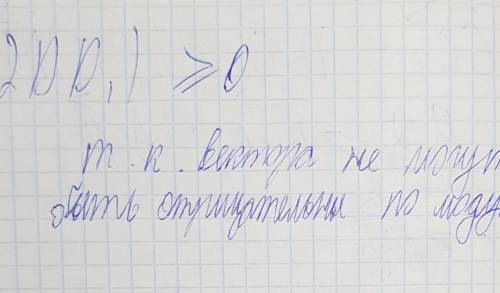 2DD₁) ⩾ 0
т.к. вектора не могут
быть отрицательны по моду